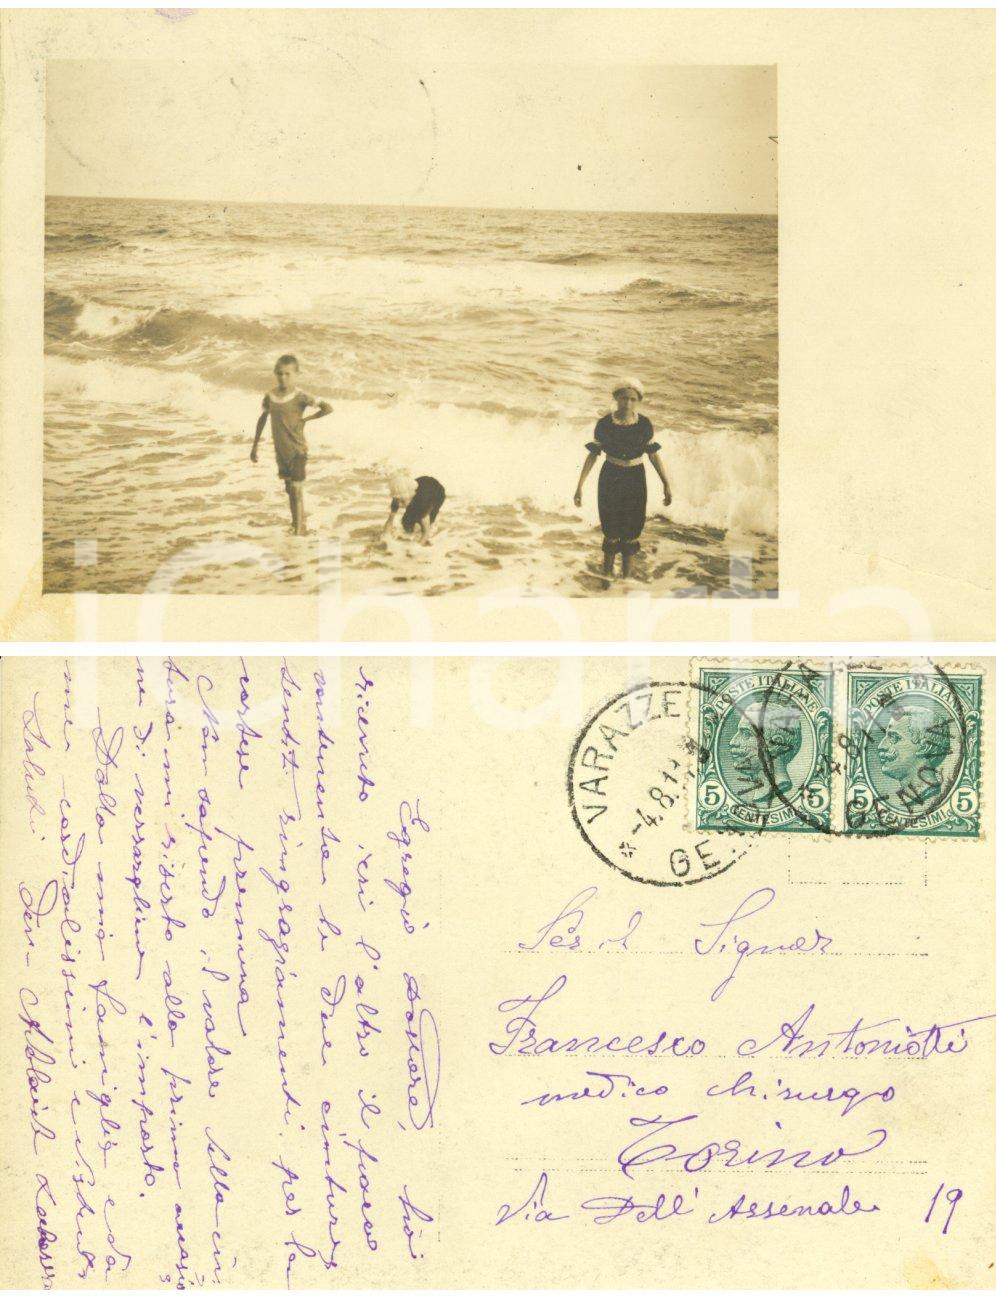 iCharta
Egregio Dottore, hò
ricevuto ieri l'altro il pacco
contenente le due cinture
sentiti ringraziamenti per la
cortese premura
Non sapendo il valore della cin
tura mi riserto alla prima occasio
ne di versargliene l'importo.
Dalla mia famiglia e da
me cordialissimi e distinti
Saluti Dev
VARAZZE
-4.8.1
GE
POSTE ITALIANE
5 CENTESIMI 5
POSTE ITALIANE
5 CENTESIMI 5
GENOVA
Per il Signor
Francesco Antoniotti
medico chirurgo
Torino
Via Dell' Arsenale 19